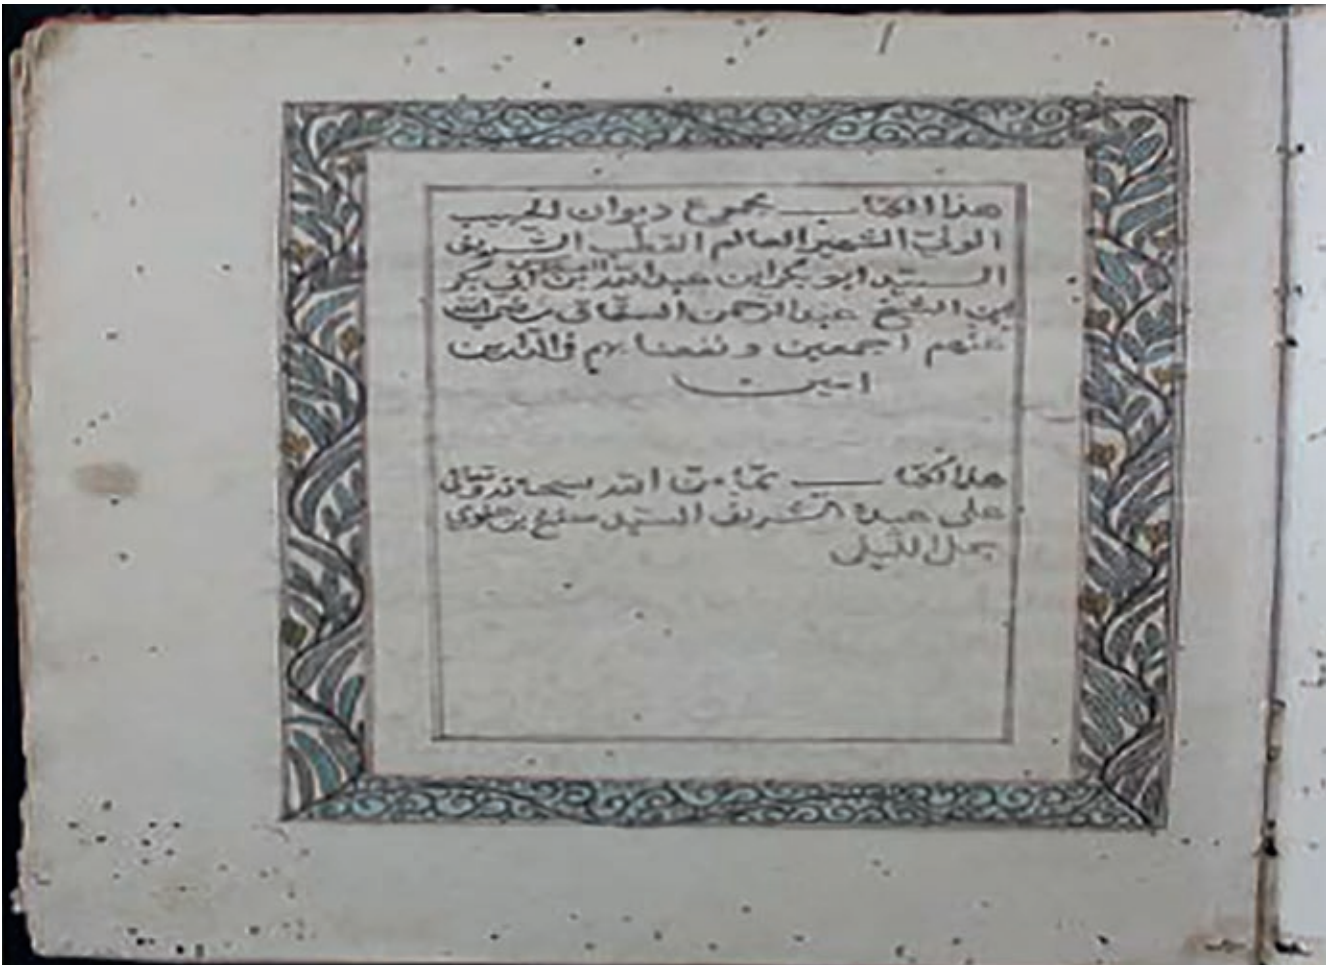 هذا الكتاب مجموع ديوان الحبيب
الولي الشهير العالم القطب الشريف
السيد ابو بكر ابن عبد الله بن ابي بكر
بن الشيخ عبد الرحمن السقاف رضي الله
عنهم اجمعين ونفعنا بهم في الدارين
امين
هذا الكتاب مما من الله سبحانه وتعالى
على عبده الشريف السيد بن علوي
جمل الليل